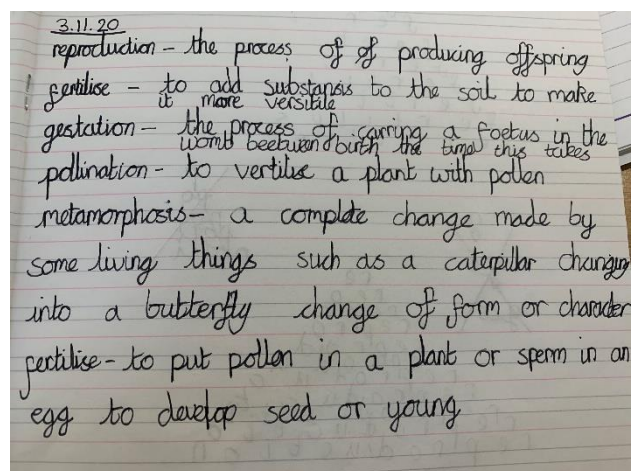 3.11.20
reproduction - the process of of producing offspring
fertilise - to add substansis to the soil to make
it more versitile
gestation - the process of carring a foetus in the
womb beetween birth the time this takes
pollination - to vertilise a plant with pollen
metamorphosis - a complete change made by
some living things such as a caterpillar changing
into a butterfly change of form or character
fertilise - to put pollen in a plant or sperm in an
egg to develop seed or young